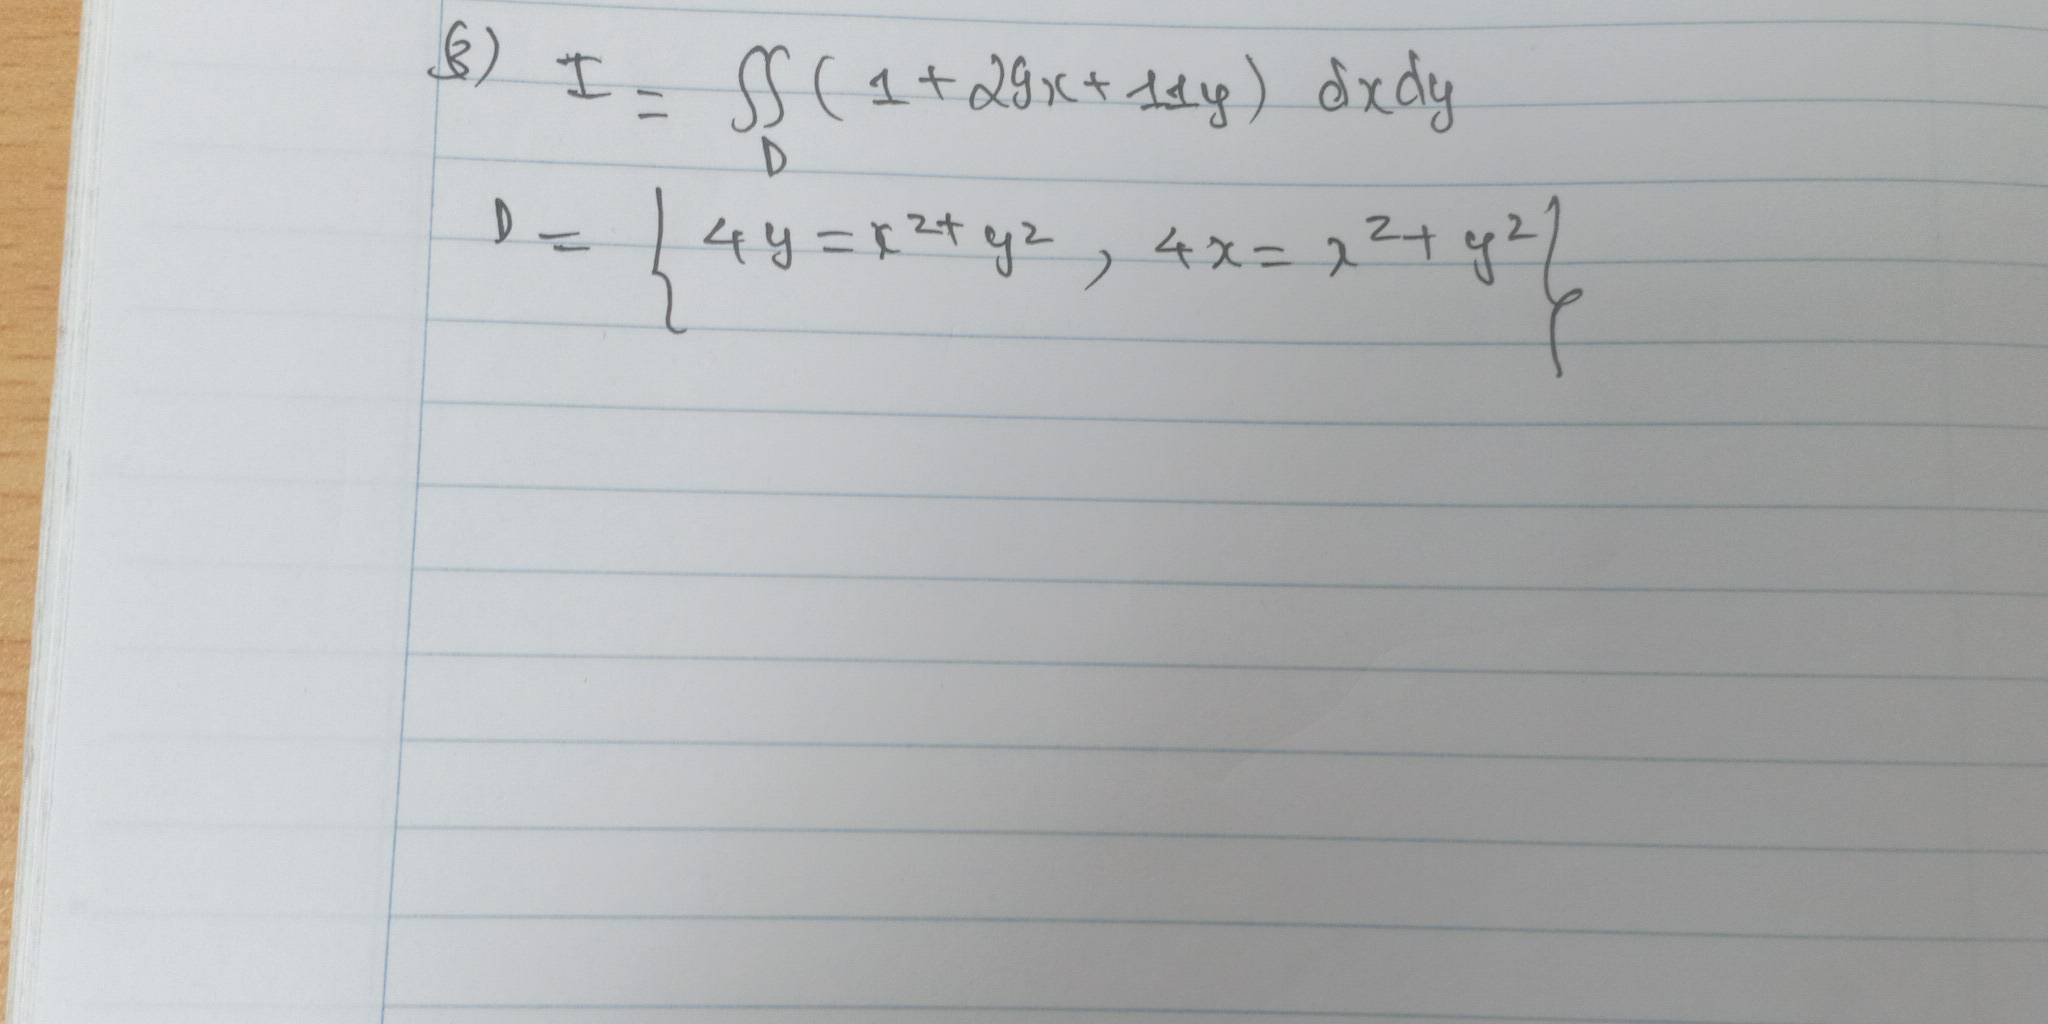 6) I = ∬ ( 1 + 29x + 11y ) dxdy
D
D = { 4y = x² + y² , 4x = x² + y² }